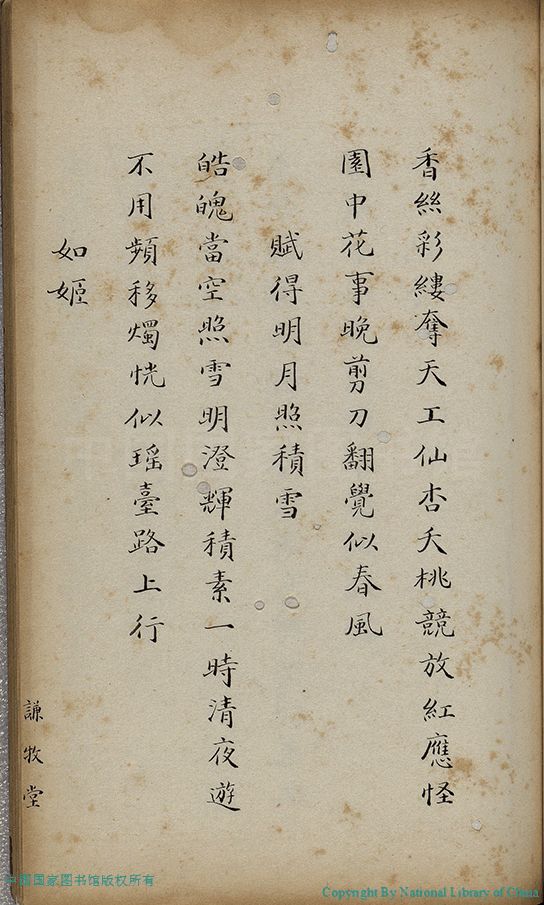 香絲彩縷奪天工仙杏夭桃競放紅應怪
園中花事晚剪刀翻覺似春風
賦得明月照積雪
皓魄當空照雪明澄輝積素一時清夜遊
不用頻移燭恍似瑤臺路上行
如姬
謙牧堂
中国国家图书馆版权所有
Copyright By National Library of China